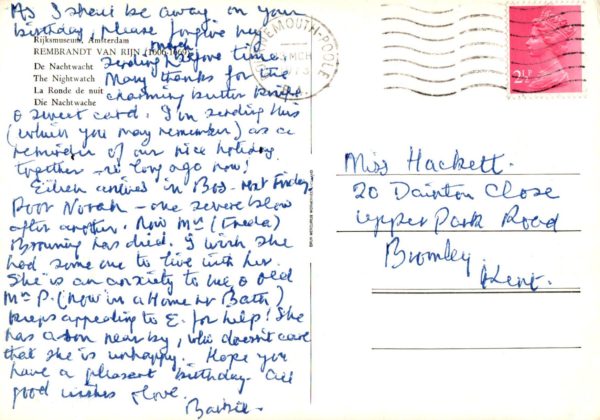 As I shall be away on your
birthday please forgive my
sending much before time.
Many thanks for the
charming butter knife
& sweet card. I'm sending this
(which you may remember) as a
reminder of our nice holiday
together – so long ago now!
Eileen arrives in Bos– next Friday.
Poor Norah – one severe blow
after another. Now Mrs (Freda)
Browning has died. I wish she
had some one to live with her.
She is an anxiety to me & old
Mrs P. (now in a Home nr Bath)
keeps appealing to E. for help! She
has a son near by, who doesn't care
that she is unhappy. Hope you
have a pleasant birthday. All
good wishes & love.
Rijksmuseum, Amsterdam
REMBRANDT VAN RIJN (1606-1669)
De Nachtwacht
The Nightwatch
La Ronde de nuit
Die Nachtwache
BOURNEMOUTH-POOLE
MCH
2½P
Miss Hackett.
20 Dainton Close
Upper Park Road
Bromley.
Kent.